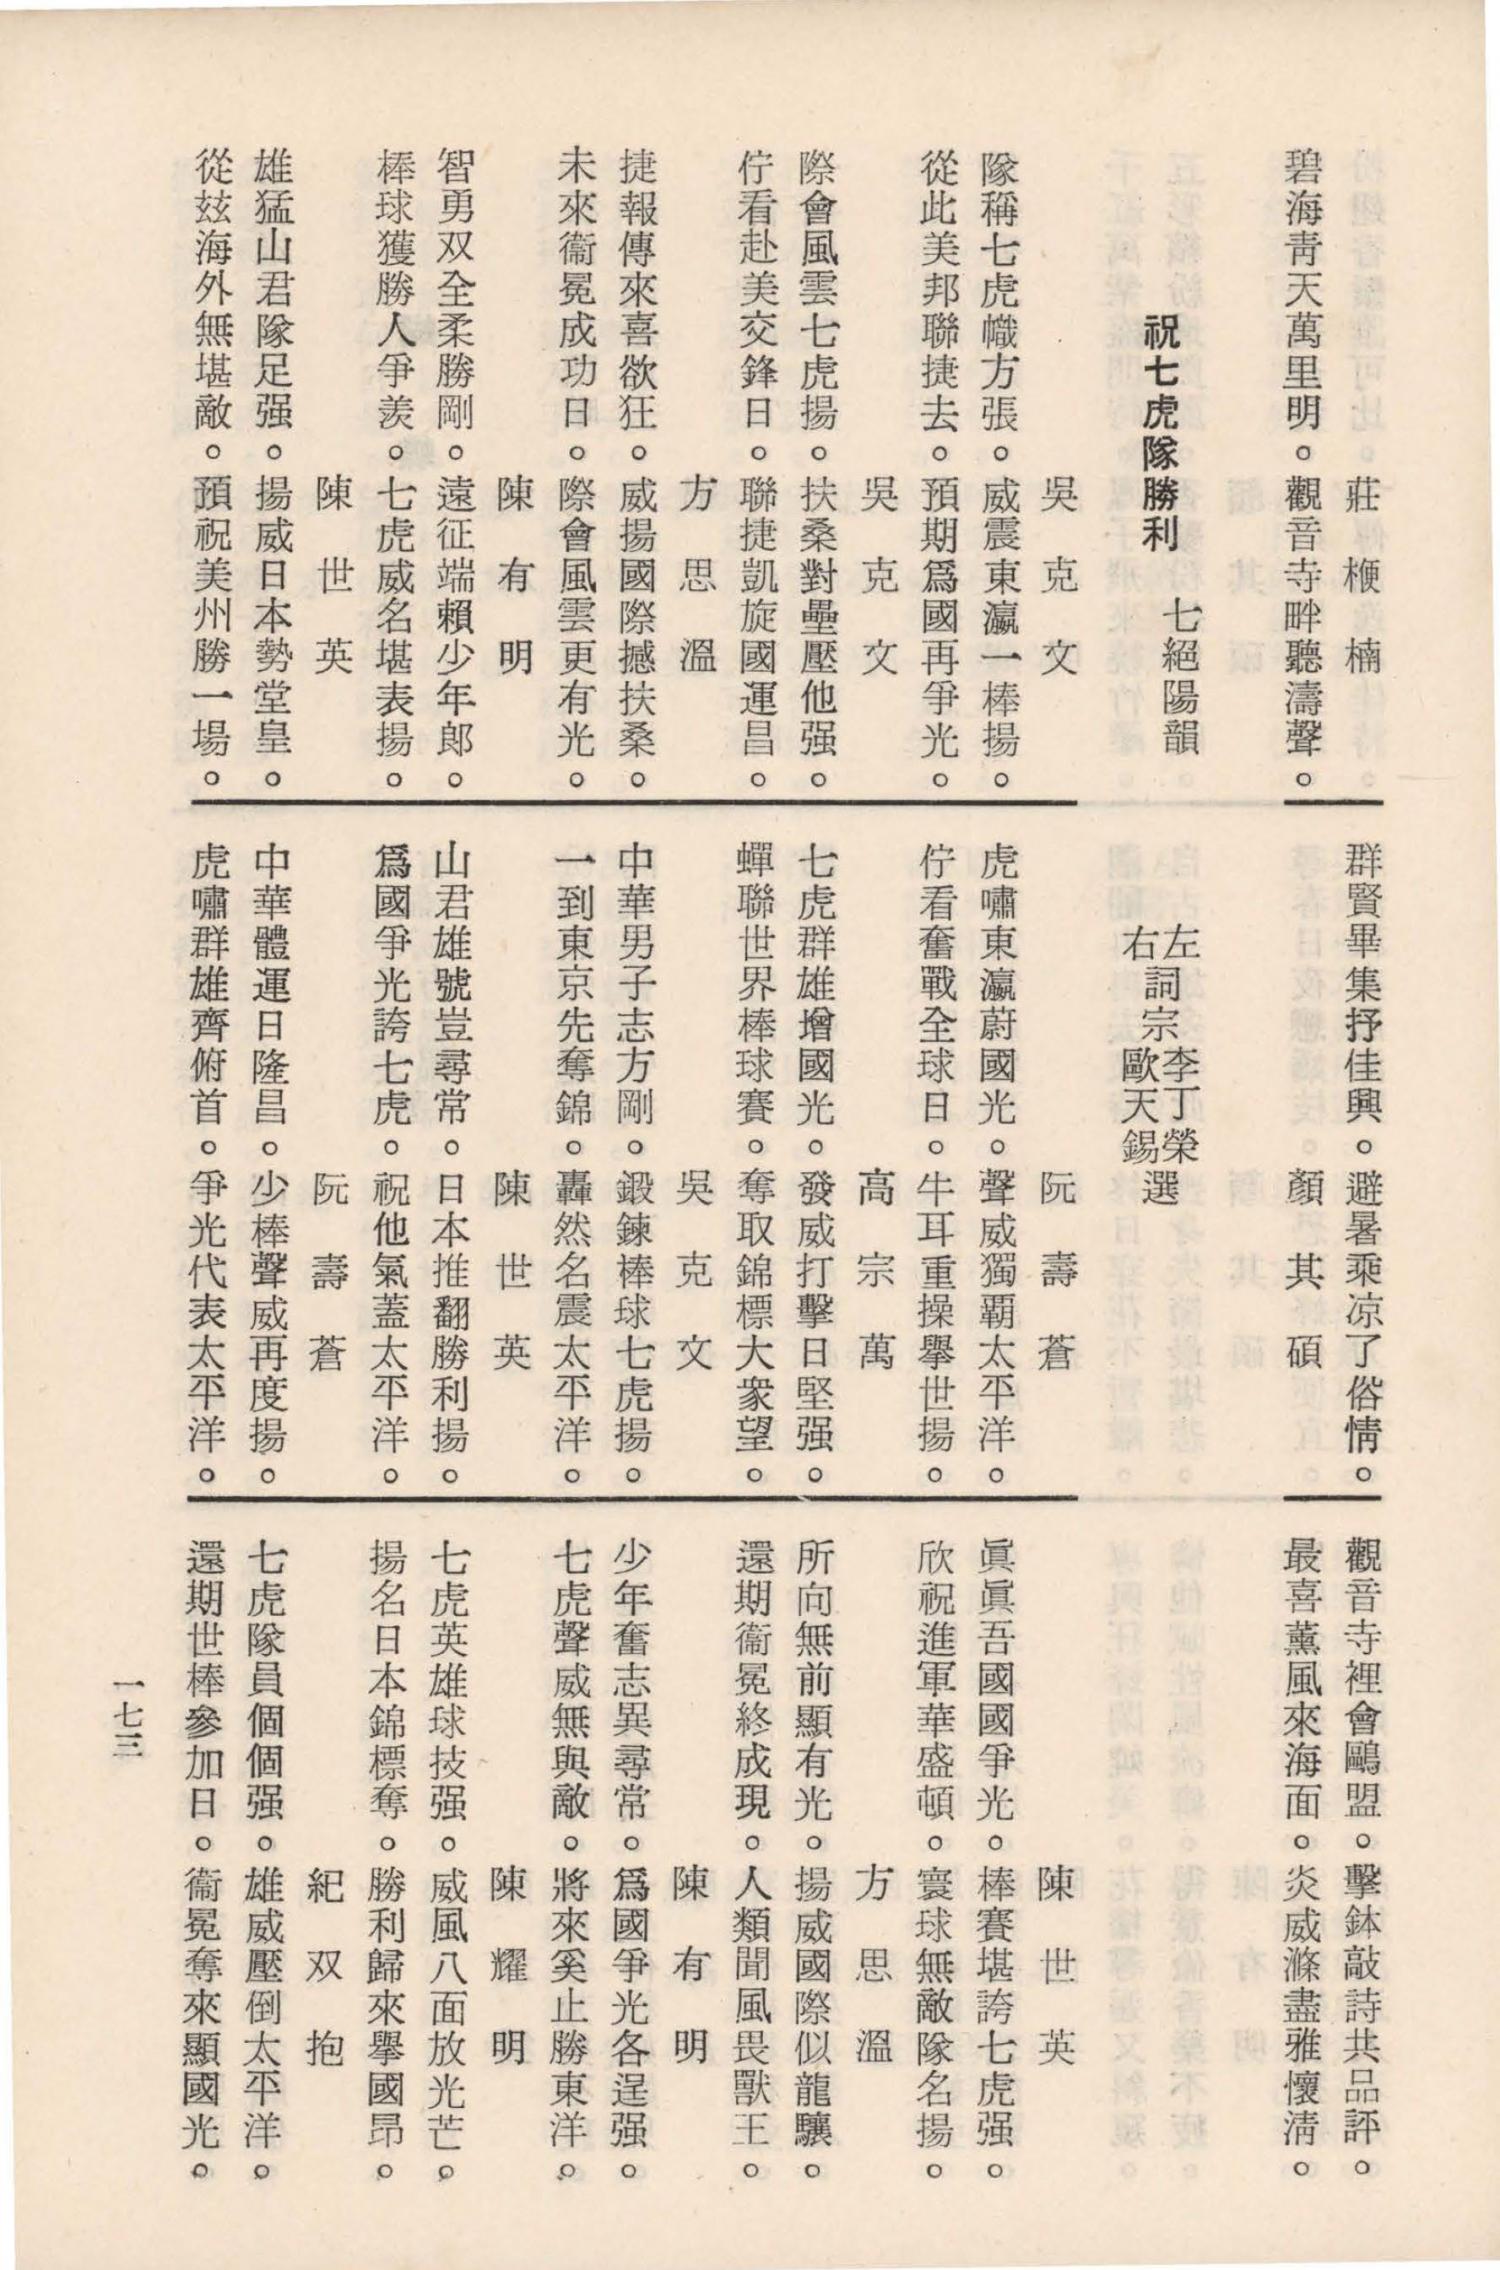 莊楩楠
碧海靑天萬里明。觀音寺畔聽濤聲。
群賢畢集抒佳興。避暑乘凉了俗情。
顏其碩
觀音寺裡會鷗盟。擊鉢敲詩共品評。
最喜薰風來海面。炎威滌盡雅懷淸。
祝七虎隊勝利　七絕陽韻
左李丁榮
詞宗選
右歐天錫
吳克文
隊稱七虎幟方張。威震東瀛一棒揚。
從此美邦聯捷去。預期爲國再爭光。
吳克文
際會風雲七虎揚。扶桑對壘壓他强。
佇看赴美交鋒日。聯捷凱旋國運昌。
方思溫
捷報傳來喜欲狂。威揚國際撼扶桑。
未來衞冕成功日。際會風雲更有光。
陳有明
智勇双全柔勝剛。遠征端賴少年郎。
棒球獲勝人爭羨。七虎威名堪表揚。
陳世英
雄猛山君隊足强。揚威日本勢堂皇。
從玆海外無堪敵。預祝美州勝一場。
阮壽蒼
虎嘯東瀛蔚國光。聲威獨霸太平洋。
佇看奮戰全球日。牛耳重操擧世揚。
高宗萬
七虎群雄增國光。發威打擊日堅强。
蟬聯世界棒球賽。奪取錦標大衆望。
吳克文
中華男子志方剛。鍛鍊棒球七虎揚。
一到東京先奪錦。轟然名震太平洋。
陳世英
山君雄號豈尋常。日本推翻勝利揚。
爲國爭光誇七虎。祝他氣蓋太平洋。
阮壽蒼
中華體運日隆昌。少棒聲威再度揚。
虎嘯群雄齊俯首。爭光代表太平洋。
陳世英
眞眞吾國國爭光。棒賽堪誇七虎强。
欣祝進軍華盛頓。寰球無敵隊名揚。
方思溫
所向無前顯有光。揚威國際似龍驤。
還期衞冕終成現。人類聞風畏獸王。
陳有明
少年奮志異尋常。爲國爭光各逞强。
七虎聲威無與敵。將來奚止勝東洋。
陳耀明
七虎英雄球技强。威風八面放光芒。
揚名日本錦標奪。勝利歸來擧國昂。
紀双抱
七虎隊員個個强。雄威壓倒太平洋。
還期世棒參加日。衞冕奪來顯國光。
一七三